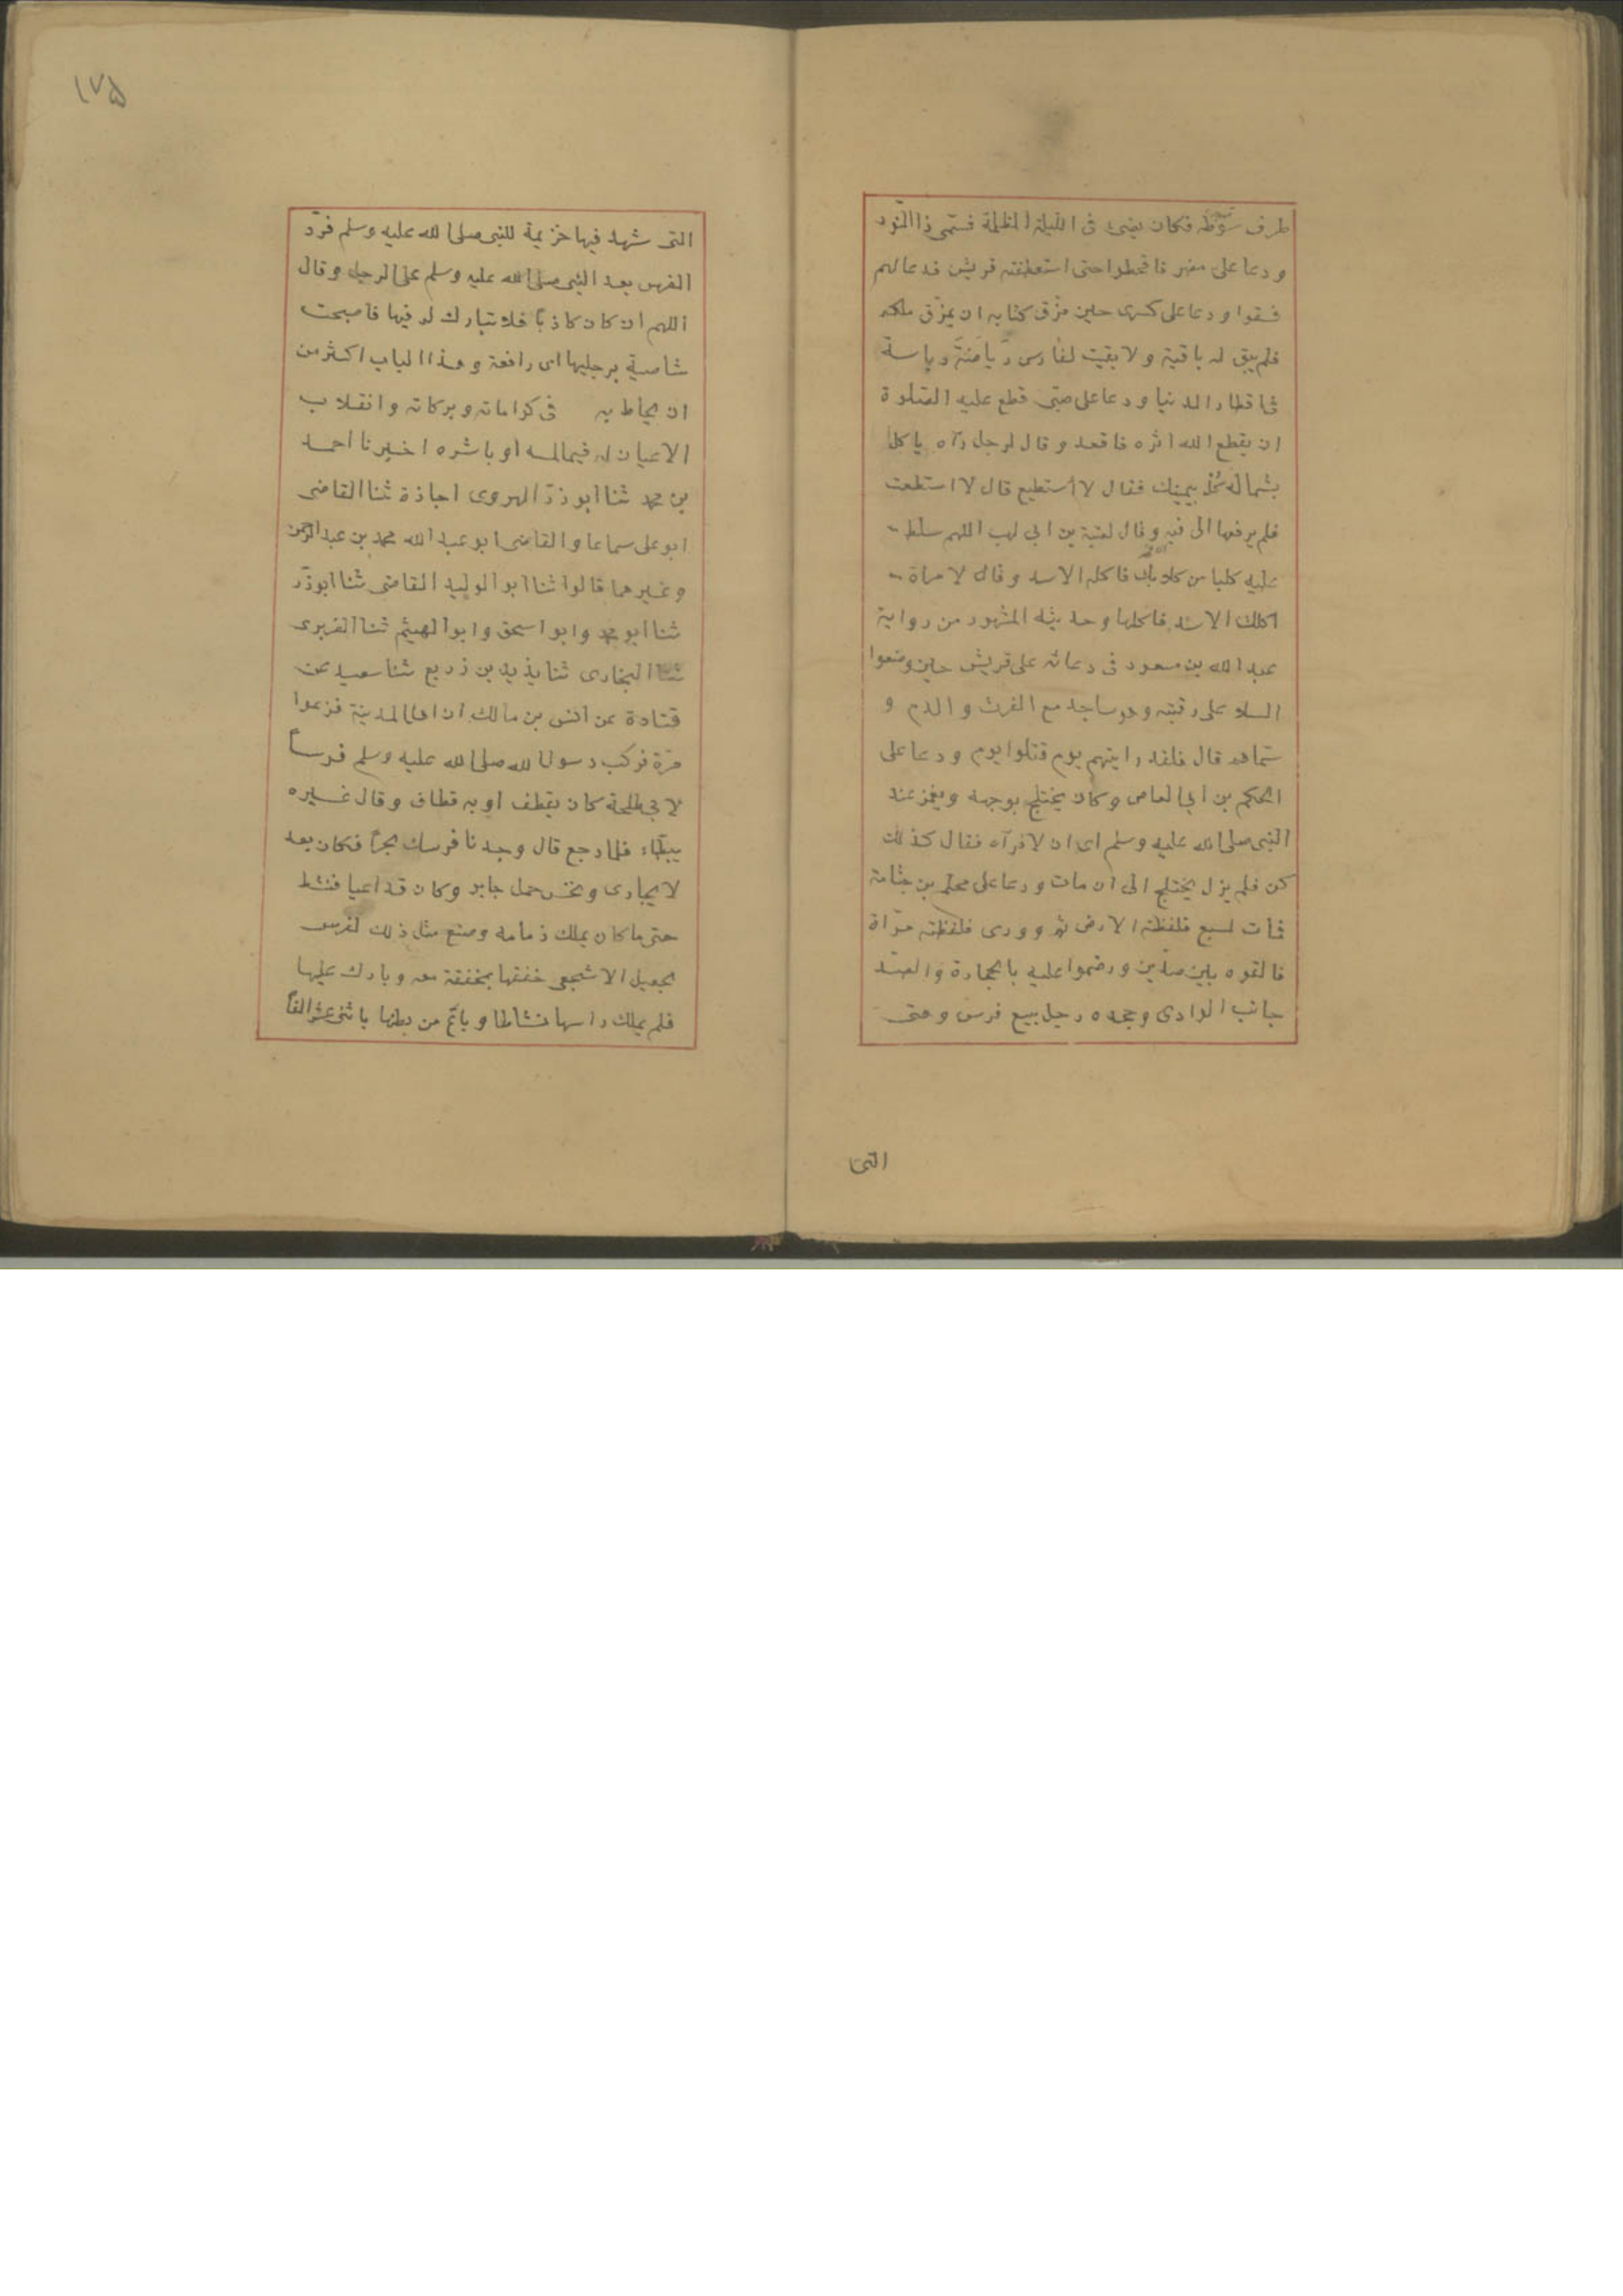 طرف سوطه فكان يضئ فى الليلة المظلمة فسمّى ذا النّور
ودعا على مضر فاقحطوا حتى استعطفته قريش فدعا لهم
فسقوا ودعا على كسرى حين مزّق كتابه ان يمزّق ملكه
فلم يبق له باقية ولا بقيت لفارس رياسة
فى اقطار الدنيا ودعا على صبّى قطع عليه الصّلوة
ان يقطع الله اثره فاقعد وقال لرجل رآه ياكل
بشماله كُل بيمينك فقال لا أستطيع قال لا استطعت
فلم يرفعها الى فيه وقال لعتبة بن ابى لهب اللهم سلّط
عليه كلبا من كلابك فاكله الاسد وقال لامراة
اكلك الاسد فاكلها وحديثه المشهور من رواية
عبد الله بن مسعود فى دعائه على قريش حين وضعوا
السلا على رقبته وهو ساجد مع الفرث والدم و
سمّاهم قال فلقد رايتهم يوم قتلوا يوم ودعا على
الحكم بن ابى العاص وكان يختلج بوجهه ويغمز عند
النبى صلى الله عليه وسلم اى ان لا فرآه فقال كذلك
كن فلم يزل يختلج الى ان مات ودعا على محلم بن جثامة
فمات لسبع فلفظته الارض ثم وورى فلفظته مرّاة
فالقوه بين صدّين ورضموا عليه بالحجارة والصّد
جانب الوادى وجحده رجل بيع فرس وهى
التى
١٧٥
التى شهد فيها خزيمة للنبى صلى الله عليه وسلم فردّ
الفرس بعد النبى صلى الله عليه وسلم على الرجل وقال
اللهم ان كان كاذبًا فلا تبارك له فيها فاصبحت
شاصية برجليها اى رافعة وهذا الباب اكثر من
ان يحاط به فى كراماته وبركاته وانقلاب
الاعيان له فيما لمسه او باشره اخبرنا احمد
بن محمد ثنا ابو ذرّ الهروى اجازة ثنا القاضى
ابو على سماعا والقاضى ابو عبد الله محمد بن عبد الرحمن
وغيرهما قالوا ثنا ابو الوليد القاضى ثنا ابو ذرّ
ثنا ابو محمد وابو اسحق وابو الهيثم ثنا الفربرى
ثنا البخارى ثنا يزيد بن زريع ثنا سعيد عن
قتادة عن انس بن مالك ان اهل المدينة فزعوا
مرّة فركب رسول الله صلى الله عليه وسلم فرسًا
لابى طلحة كان يقطف او به قطاف وقال غيره
يبطّاء فلما رجع قال وجدنا فرسك بحرًا فكان بعد
لا يجارى ونخس جمل جابر وكان قد اعيا فنشط
حتى ما كان يملك زمامه وصنع مثل ذلك لفرس
لجعيل الاشجعى خفقها بمخفقة معه وبارك عليها
فلم يملك راسها نشاطا وباع من بطنها باثنى عشر الفًا